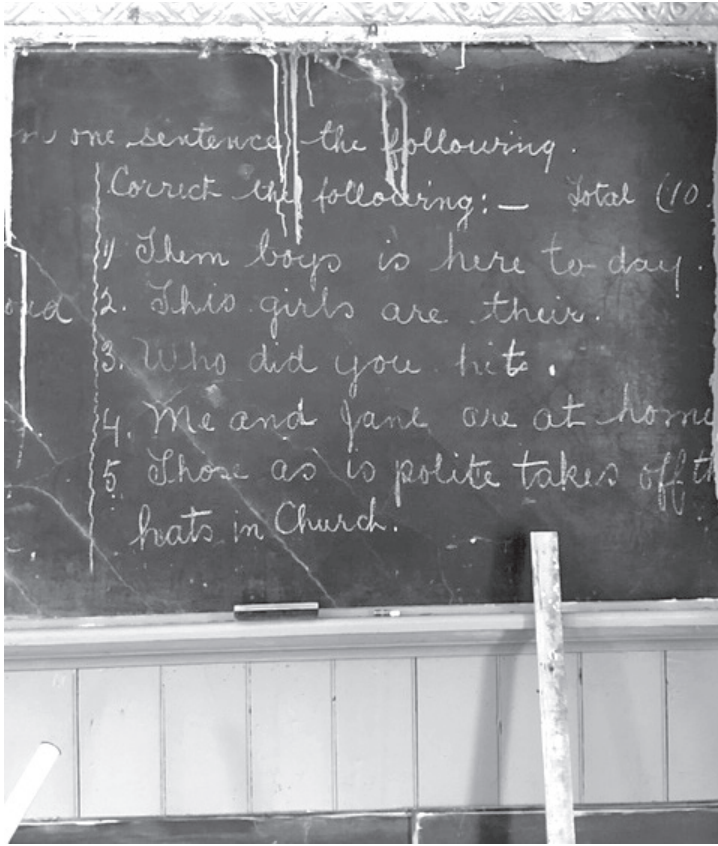 one sentence the following.
Correct the following:— Total (10
1) Them boys is here to day.
2. This girls are their.
3. Who did you hit.
4. Me and Jane are at home
5 Those as is polite takes off th
hats in Church.